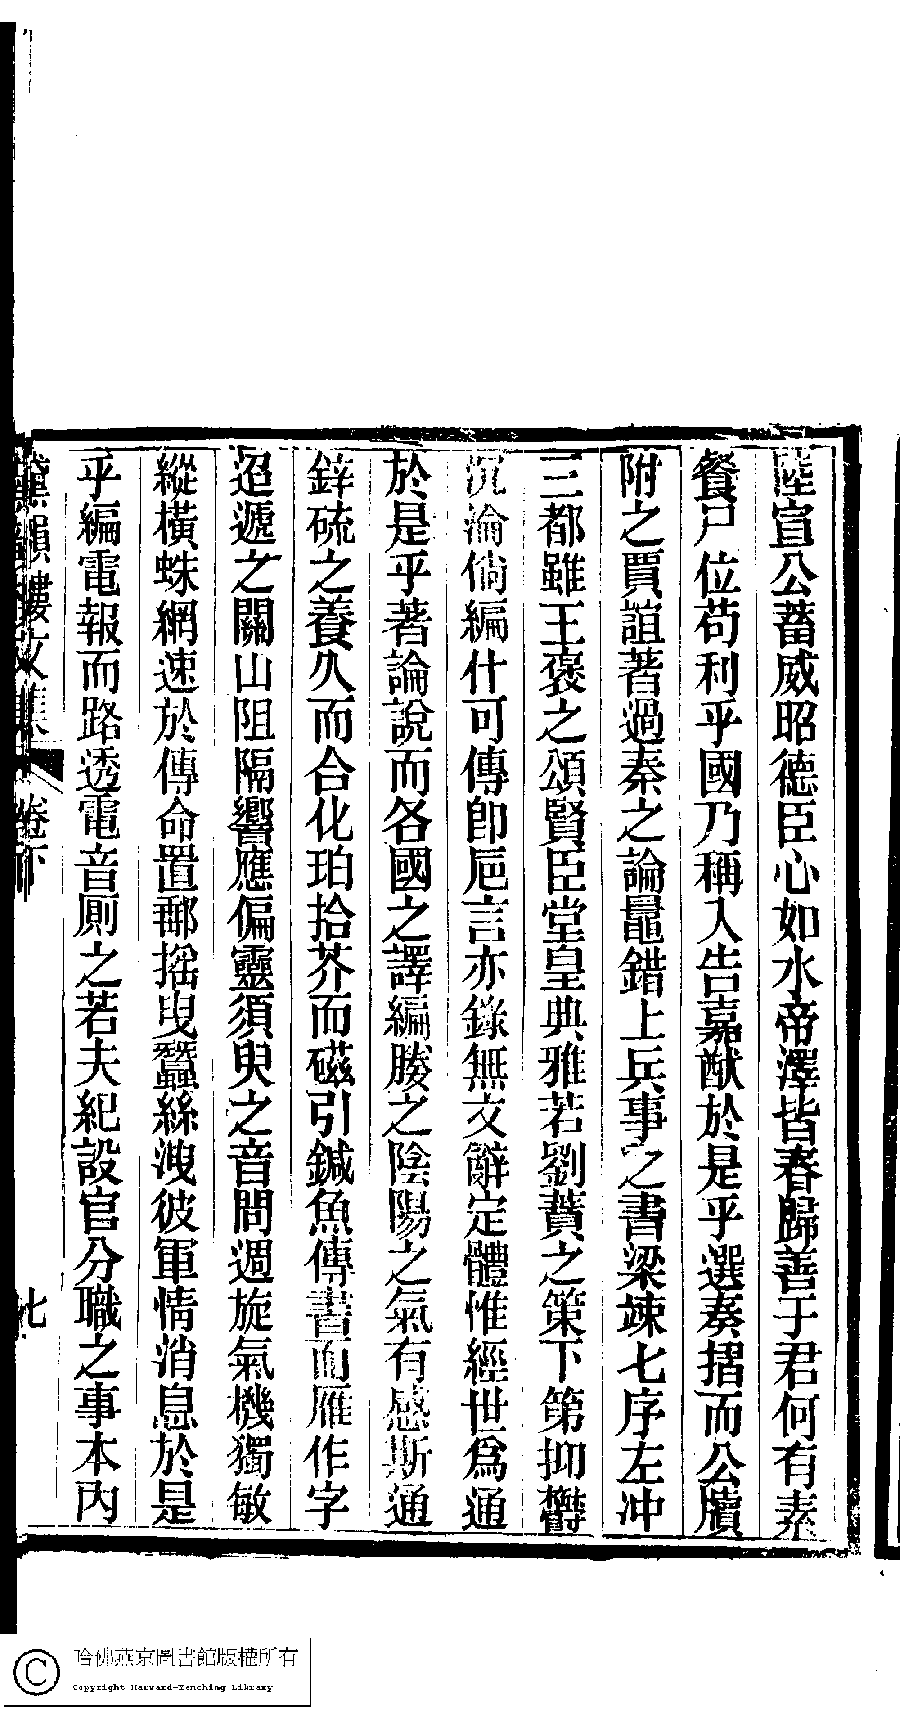 陸宣公蓄威昭德臣心如水帝澤皆春歸善于君何有素
餐尸位苟利乎國乃稱入告嘉猷於是乎選奏摺而公牘
附之賈誼著過秦之論鼂錯上兵事之書梁竦七序左沖
三都雖王褒之頌賢臣堂皇典雅若劉蕡之策下第抑鬱
沉淪倘編什可傳卽巵言亦錄無文辭定體惟經世爲通
於是乎著論說而各國之譯編賸之陰陽之氣有感斯通
鋅硫之養久而合化珀拾芥而磁引鍼魚傳書而雁作字
迢遞之關山阻隔響應偏靈須臾之音問週旋氣機獨敏
縱橫蛛網速於傳命置郵搖曳蠶絲洩彼軍情消息於是
乎編電報而路透電音厠之若夫紀設官分職之事本內
黛韻樓文集
卷下
七
哈佛燕京圖書館版權所有
Copyright Harvard-Yenching Library